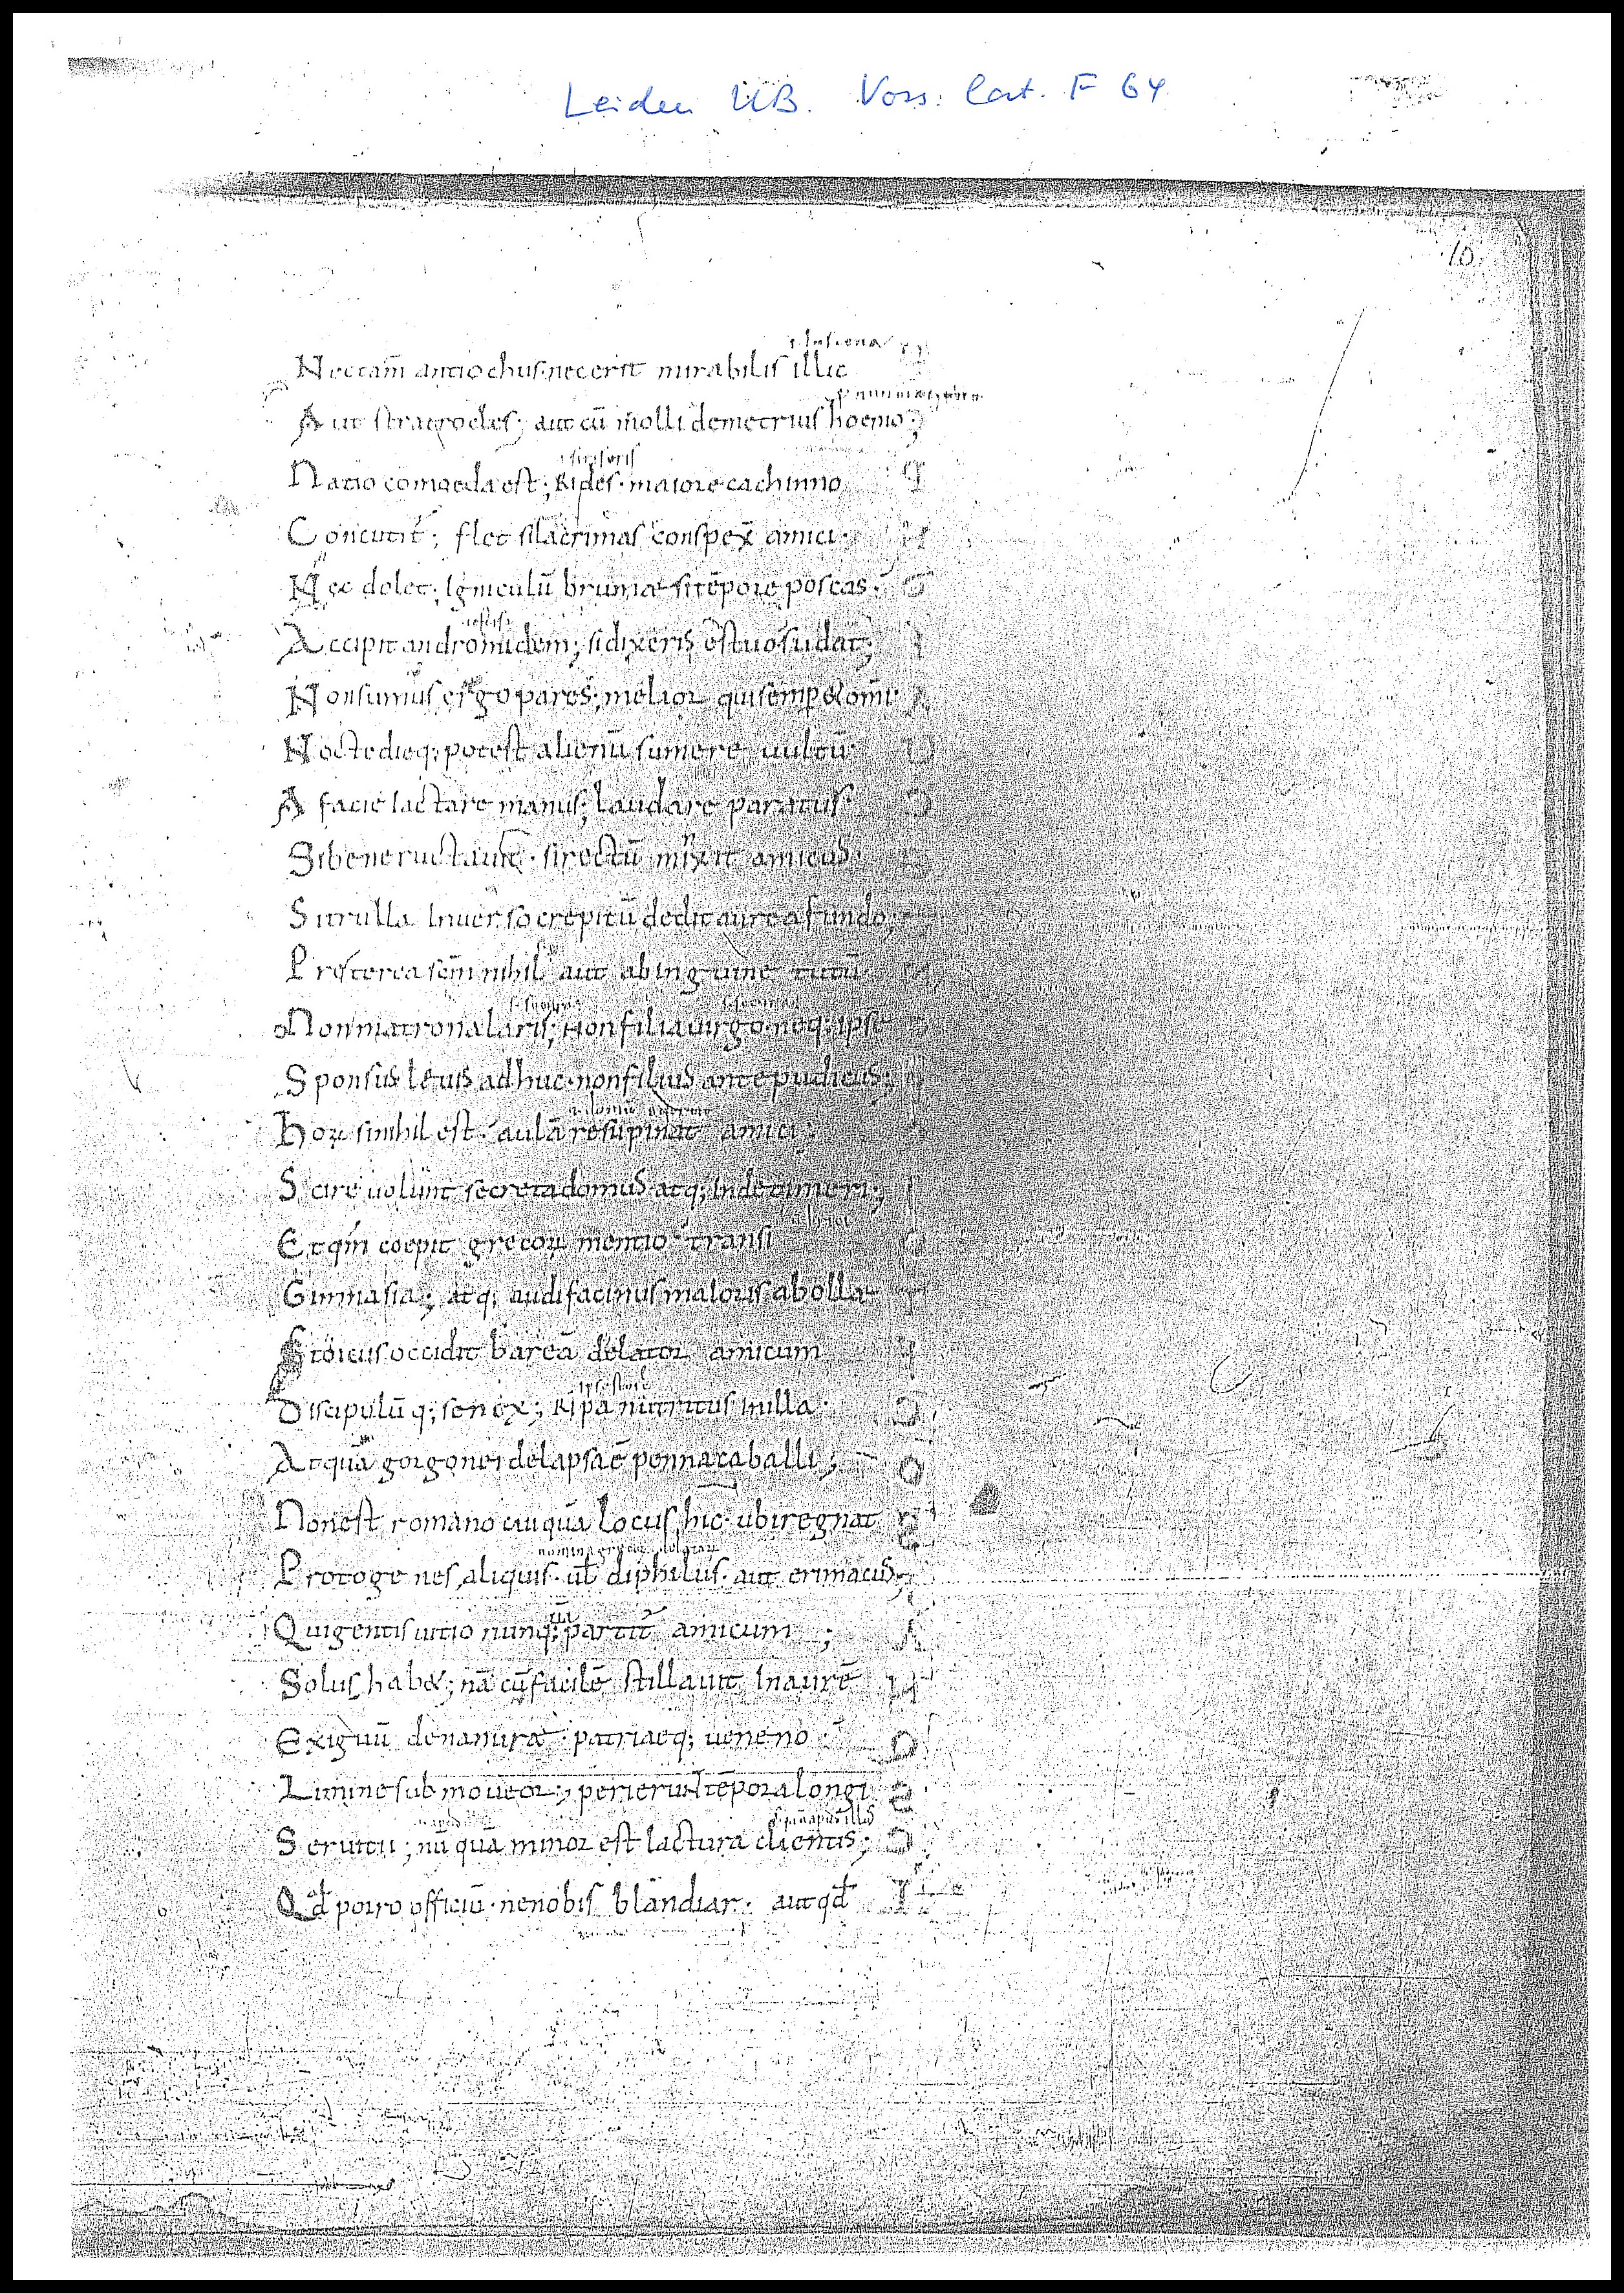 Leiden UB. Voss. lat. F 64
10
Nec tam̄ antiochus. nec erit mirabilis illic
Aut stratocles; aut cū molli demetrius hoemo;
Natio comoeda est; Rides. maiore cachinno
Concutit̄; flet si lacrimas conspex̄ amici.
Nec dolet; Igniculū brumae si tēpore poscas.
Accipit andromidem; si dixeris ęstuo sudat;
Non sumus ergo pares; melior qui semp & om̄i
Nocte dieq; potest alienū sumere uultū
A facie iactare manus; laudare paratus
Si bene ructauit. si rectū mixit amicus.
Si trulla Inuerso crepitū dedit aurea fundo;
Preterea sc̄m nihil aut ab inguine tutū
Non matrona laris; Non filia uirgo. neq; ipse
Sponsus leuis adhuc. non filius ante pudicus;
Hoꝝ si nihil est. aulā resupinat amici;
Scire uolunt secreta domus atq; Inde timeri;
Et qm̄ coepit grecoꝝ mentio transi
Gimnasia; atq; audi facinus maioris abollae
Stoicus occidit bareā delator amicum
Discipulū q; senex; Ripa nutritus In illa
At quā gorgonei delapsa ē penna caballi;
Non est romano cuiquā locus hic. ubi regnat
Protogenes aliquis. ul̄ diphilus. aut erimacus;
Qui gentis uitio nunq; partit̄ amicum;
Solus hab&; nā cū facilē stillauit In aurē
Exiguū de naturae patriaeq; ueneno
Limine submoueor; perierunt tēpora longi
Seruitii; nūquā minor est Iactura clientis;
Qd̄ porro officiū. ne nobis blandiar. aut qd̄